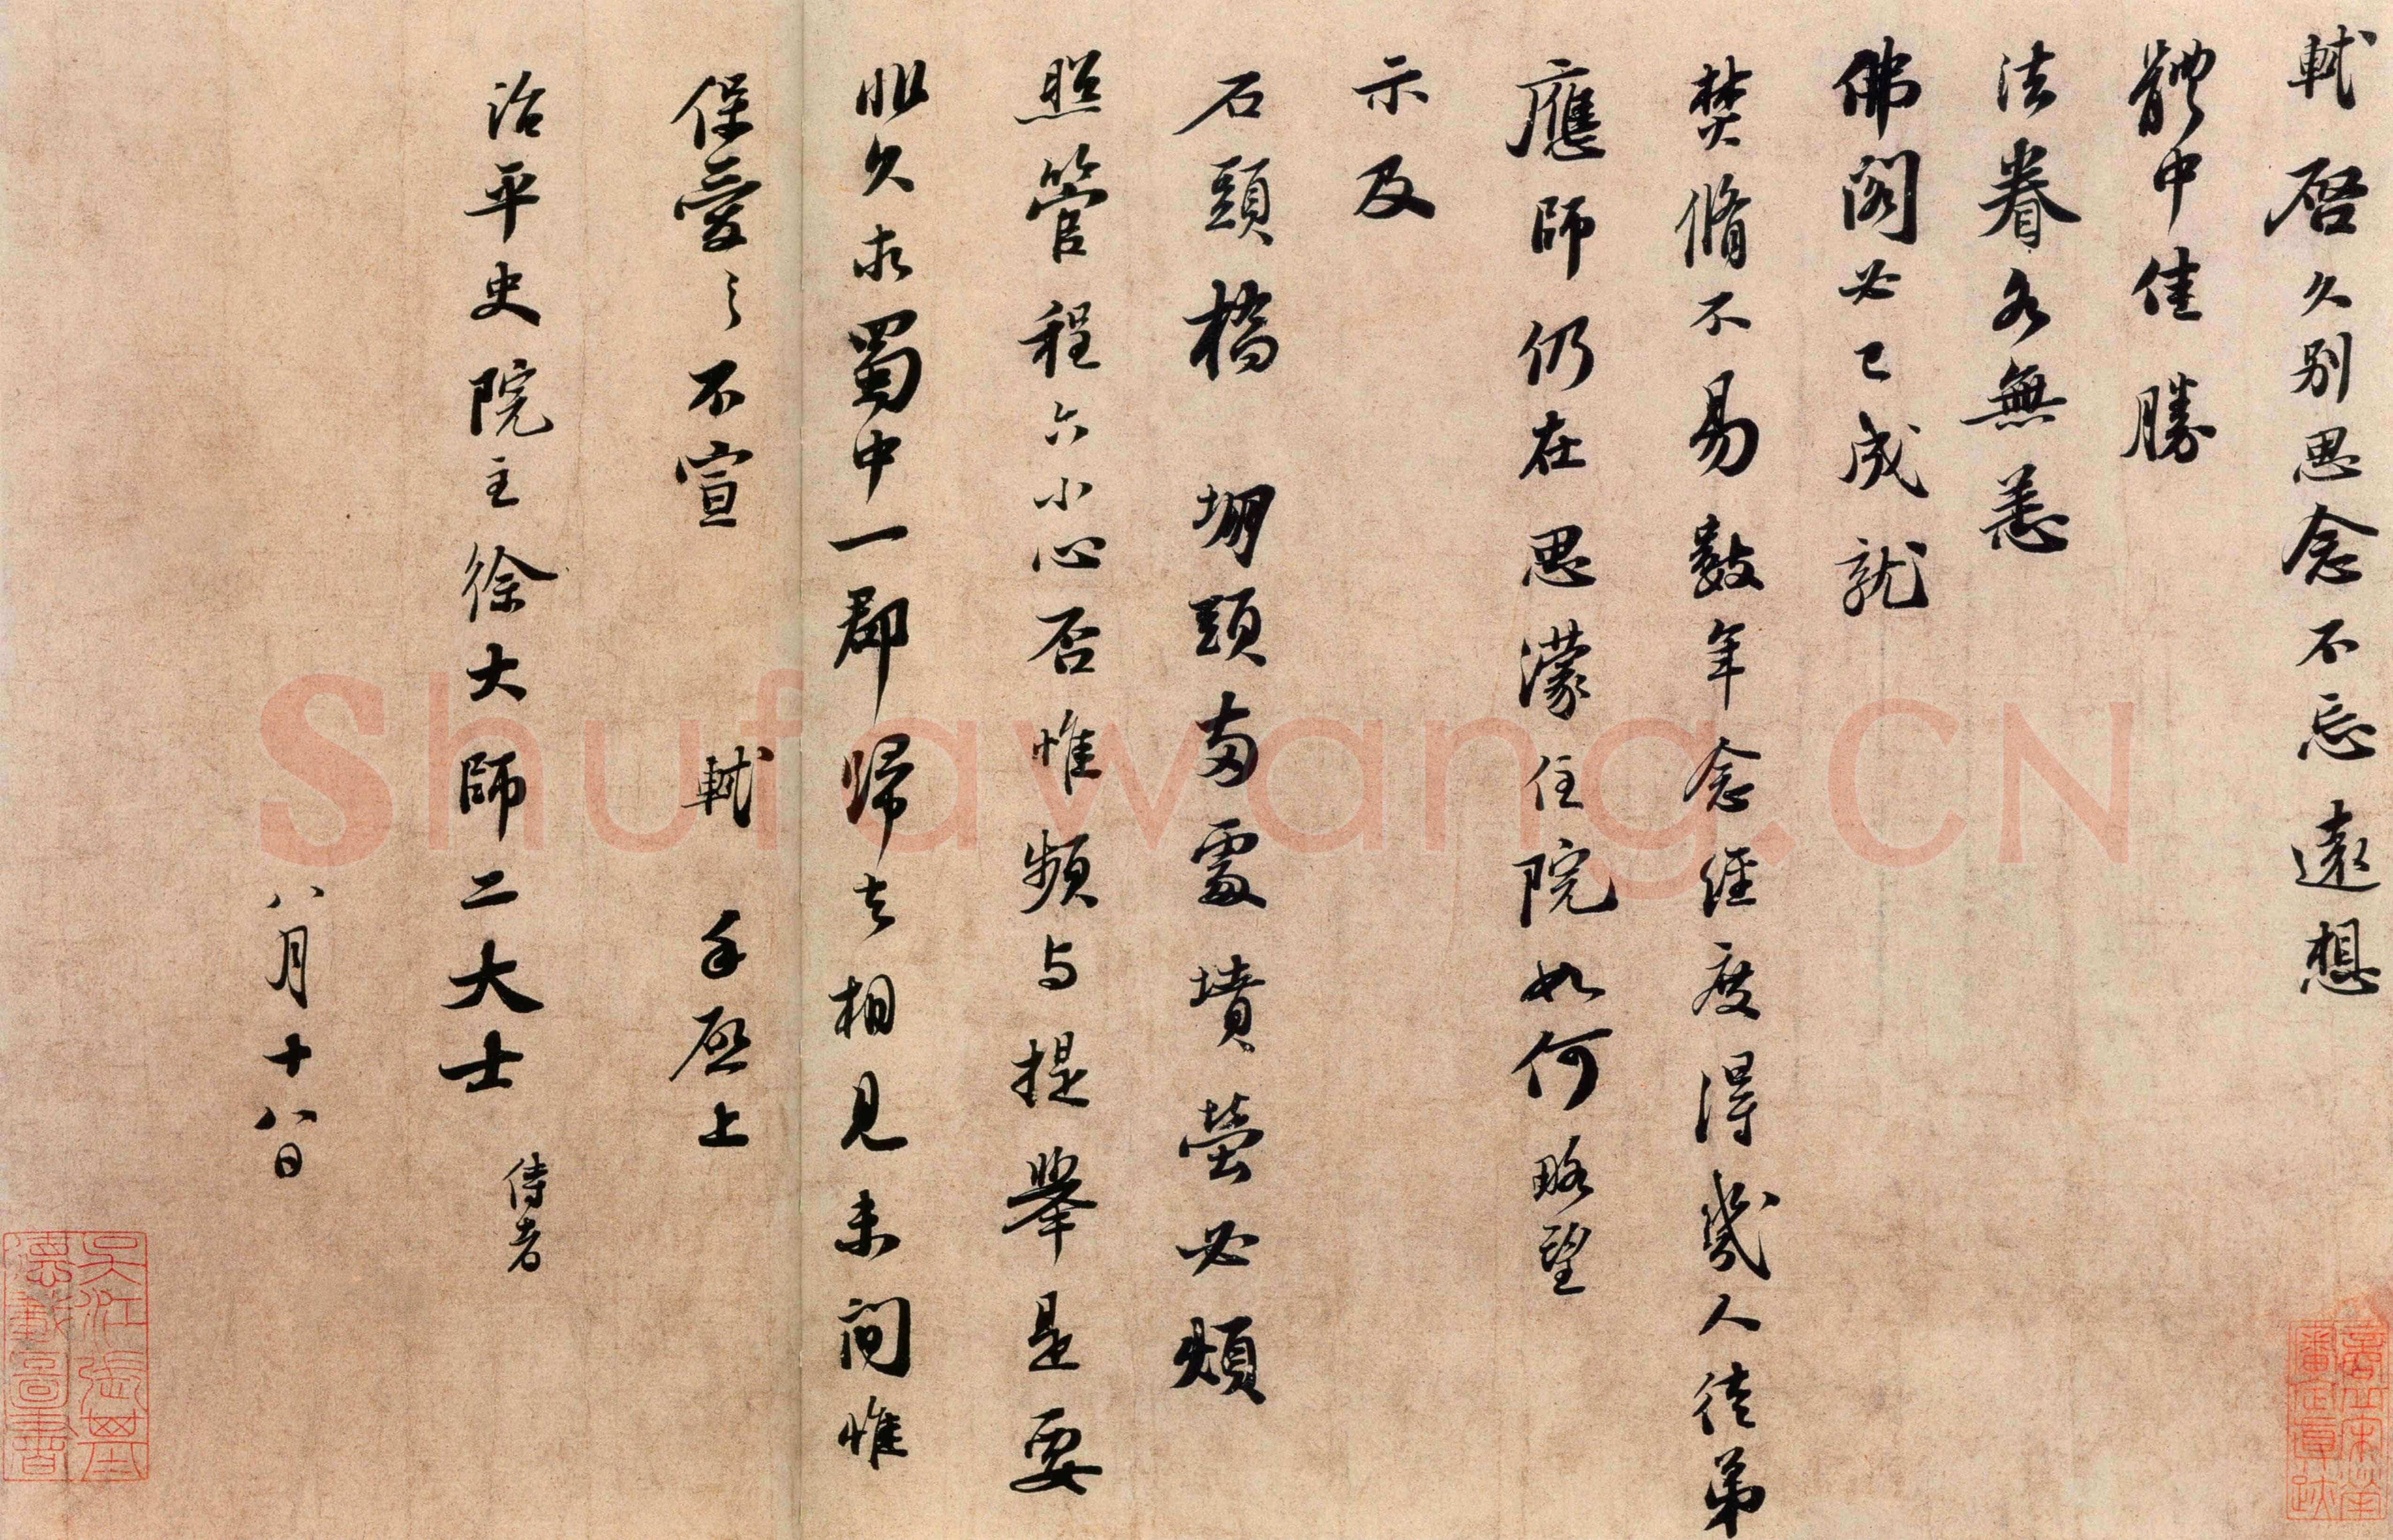 軾啓久別思念不忘遠想
體中佳勝
法眷各無恙
佛閣必已成就
焚脩不易數年念經度得幾人徒弟
應師仍在思濛住院如何略望
示及
石頭橋 堋頭兩處墳塋必煩
照管程六小心否惟頻与提舉是要
非久求蜀中一郡歸去相見未間惟
保愛之不宣 軾手啓上
治平史院主徐大師二大士 侍者
八月十八日
Shufawang.CN